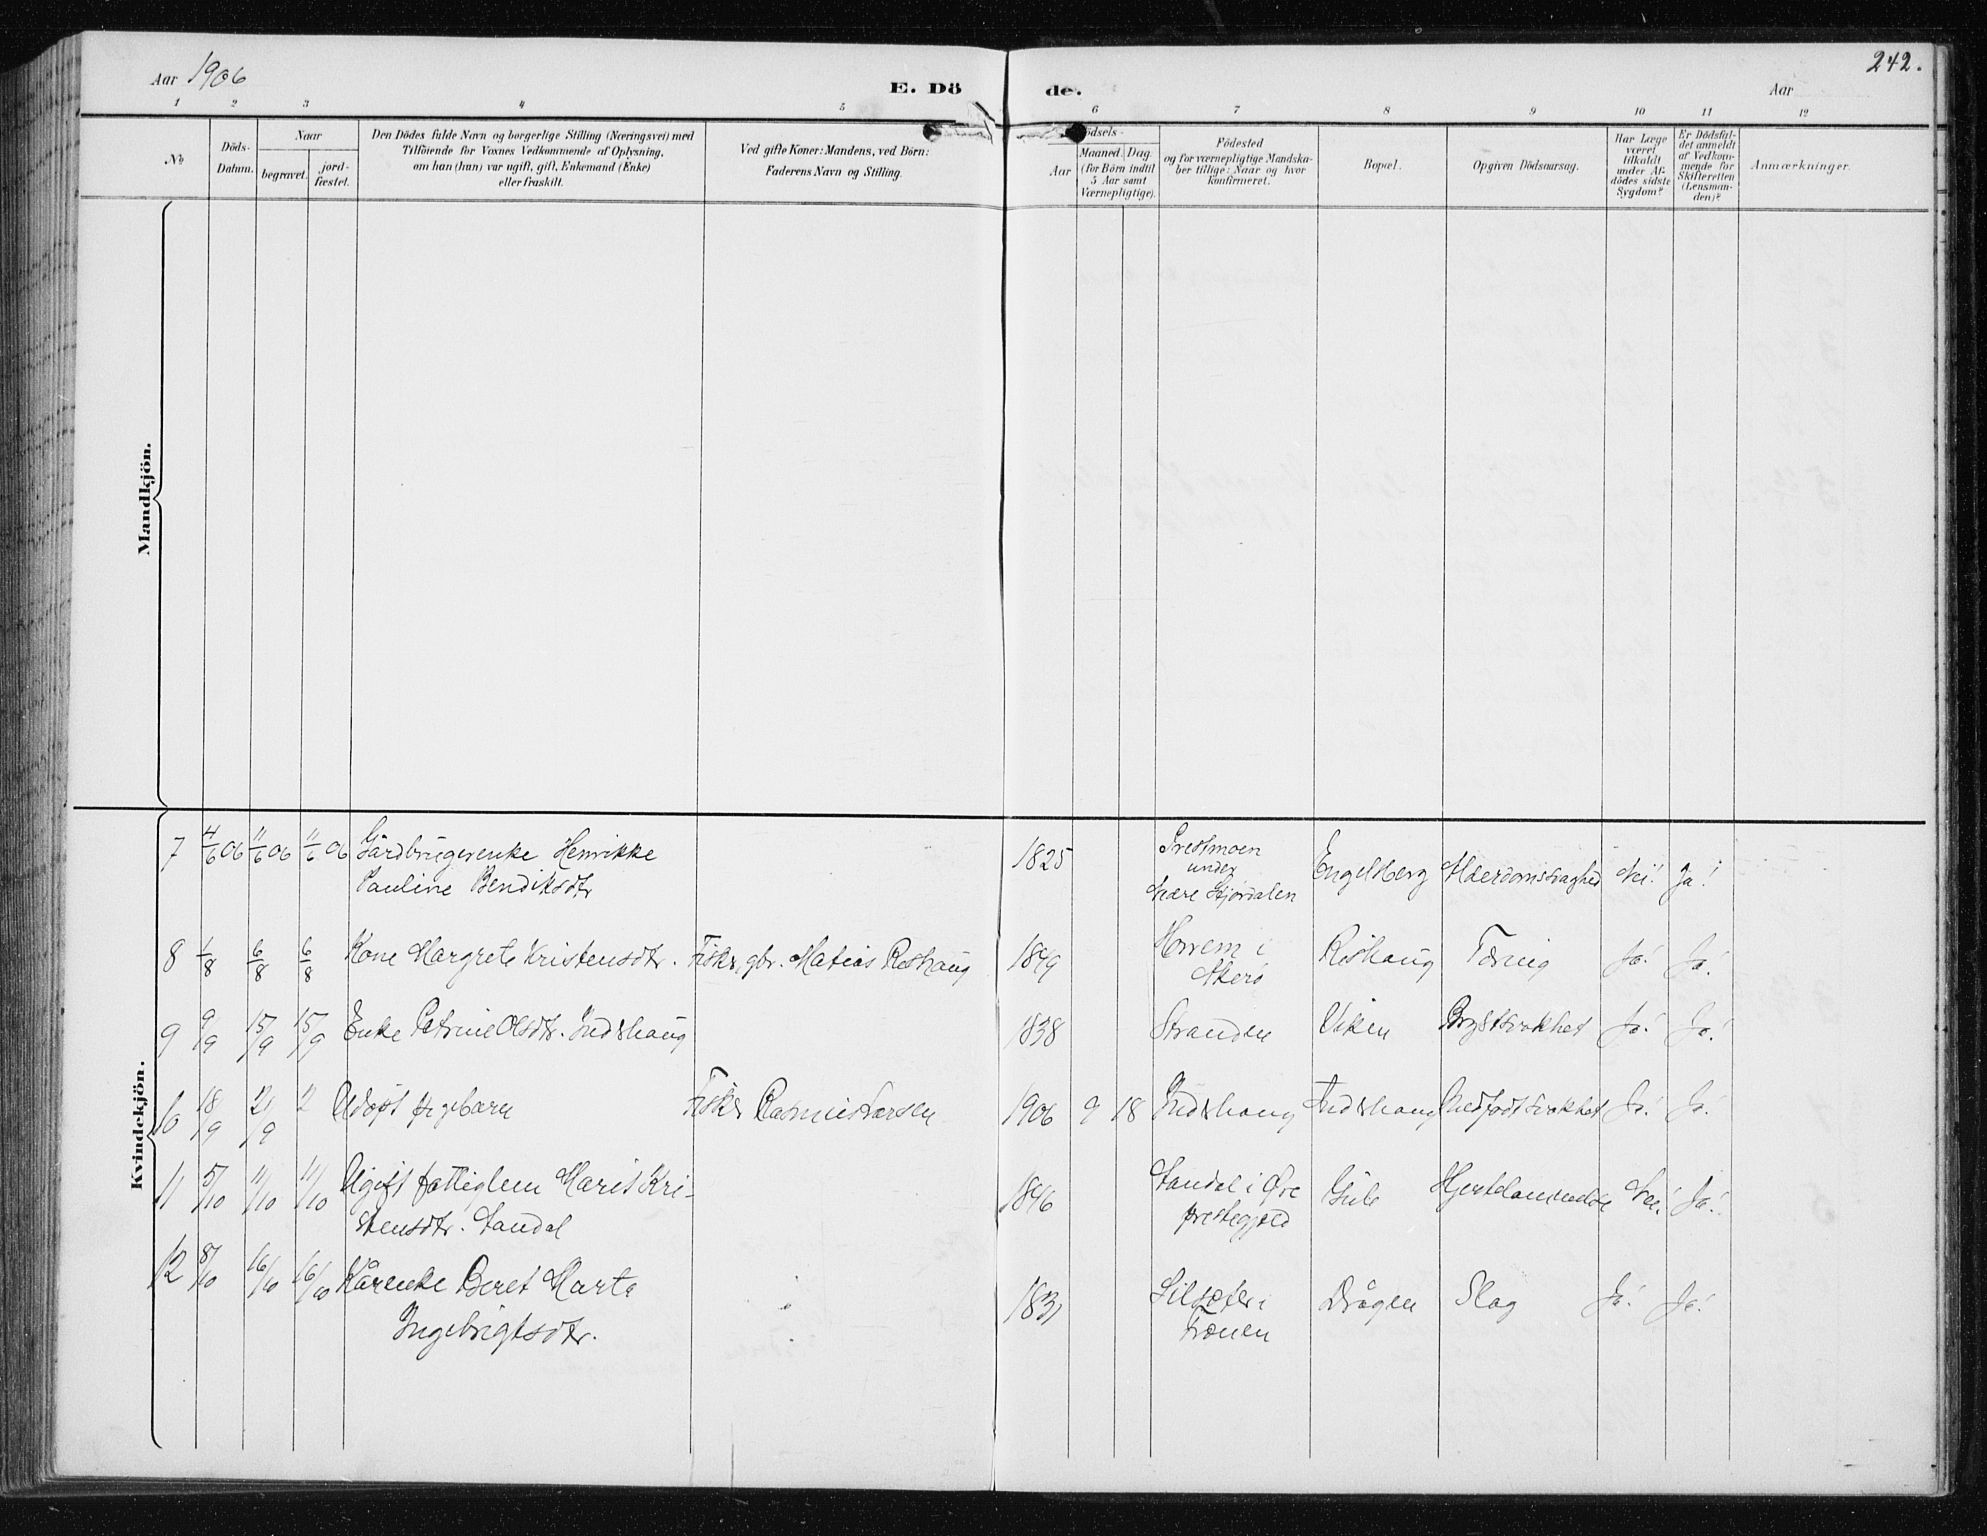 Aar 1906
E. Dö
de.
Aar
242.
1 2 3 4 5 6 7 8 9 10 11 12
No
Döds-
Datum.
Naar
begravet.
jord-
fæstet.
Den Dödes fulde Navn og borgerlige Stilling (Næringsvei) med
Tilföiende for Voxnes Vedkommende af Oplysning,
om han (hun) var ugift, gift, Enkemand (Enke)
eller fraskilt.
Ved gifte Koner: Mandens, ved Börn:
Faderens Navn og Stilling.
ödsels-
Aar
Maaned. Dag.
(for Börn indtil
5 Aar samt
Værnepligtige).
Födested
og for værnepligtige Mandska-
ber tillige: Naar og hvor
konfirmeret.
Bopæl.
Opgiven Dödsaarsag.
Har Læge
været
tilkaldt
under Af-
dödes sidste
Sygdom?
Er Dödsfal-
det anmeldt
af Vedkom-
mende for
Skifteretten
(Lensman-
den)?
Anmærkninger.
Mandkjön.
Kvindekjön.
7 4/6 06 11/6 06 11/6 06 Gårdbrugerenke Henrikke
Pauline Bendiksdtr
1825
under
Engelberg
Nei! Ja!
8 1/8 6/8 6/8 Kone Margrete Kristensdtr. Fisker, gbr. Matias Røshaug 1849 Horrem i
Akerö
Røshaug Tæring Ja! Ja!
9 9/9 15/9 15/9 Enke Petrine Olsdtr. Indrehaug 1838 Stranden Viken Brystsvakhet Ja! Ja!
10 18/9 21/9 2 Udøpt pigebarn Fisker Rasmus Larsen 1906 9 18 Indrehaug Indrehaug Medfødt svakhet Ja! Ja!
11 5/10 11/10 11/10 Ugift fattiglem Marit Kri-
stensdtr. Sandal
1846 Sandal i Øre
prestegjeld
Gule Nei! Ja!
12 8/10 16/10 16/10 Kårenke Beret Marta
Ingebrigtsdtr.
1831
i
Frænen
Drågen Slag Ja! Ja!